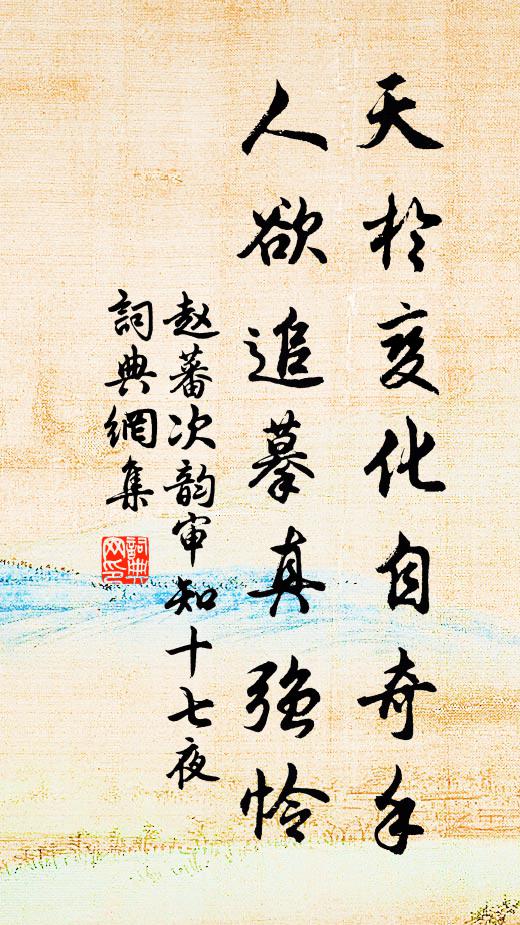 天於变化自奇手
人欲追摹真強怜
赵蕃次韵审知十七夜
詞典網集
詞典网印